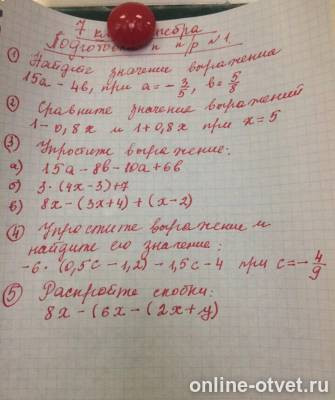 7 класс алгебра
Подготовка к к/р №1
① Найдите значение выражения
15a - 4b, при a = -3/5, b = 5/8
② Сравните значение выражений
1 - 0,8x и 1 + 0,8x при x = 5
③ Упростите выражение:
а) 15a - 8b - 10a + 6b
б) 3 · (4x - 3) + 7
в) 8x - (3x + 4) + (x - 2)
④ Упростите выражение и
найдите его значение:
-6 · (0,5c - 1,2) - 1,5c - 4 при c = -4/9
⑤ Раскройте скобки:
8x - (6x - (2x + y)
online-otvet.ru